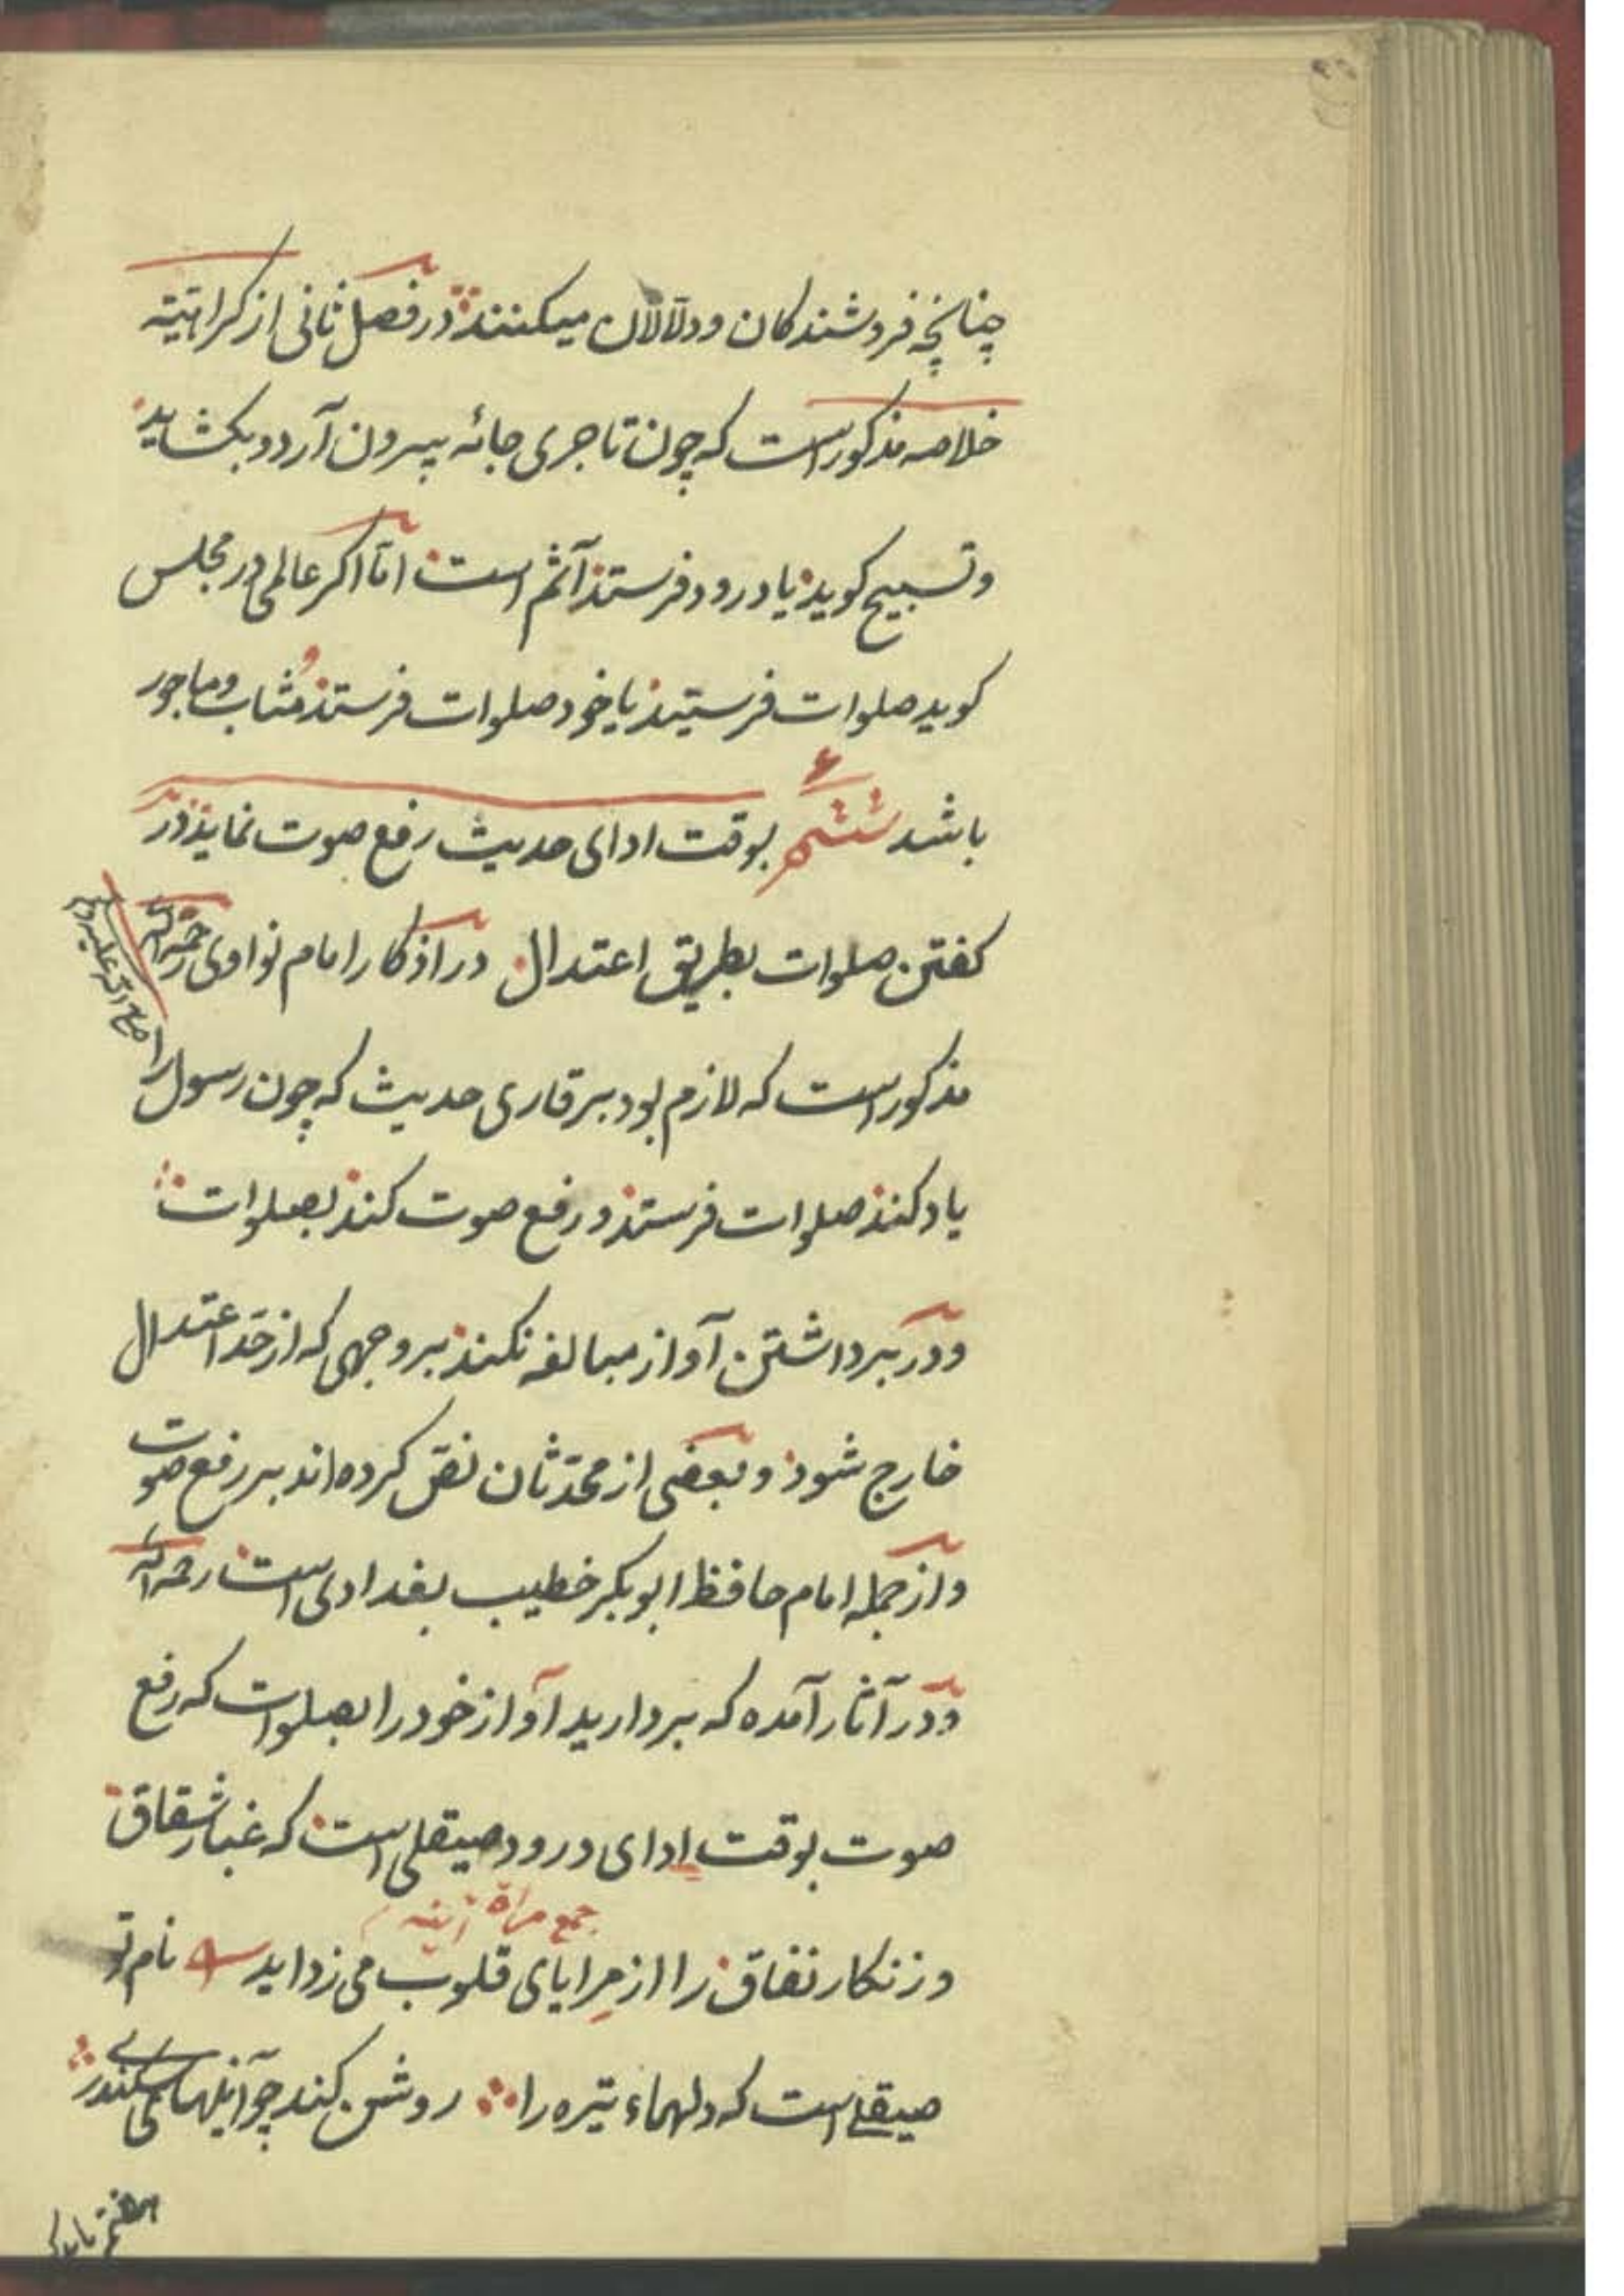 چنانچه فروشندکان و دلّالان میکنند در فصل ثانی از کراهیّته
خلاصه مذکور است که چون تاجری جائه بیرون آرد و بکشاید
و تسبیح کوید یا درود فرستد آثم است امّا اکر عالمی در مجلس
کوید صلوات فرستید یا خود صلوات فرستد مُثاب و ماجور
باشد ششم ۶ بوقت ادای حدیث رفع صوت نماید در
کفتن صلوات بطریق اعتدال در اذکار امام نواوی رحمه الله
مذکور است که لازم بود بر قاری حدیث که چون رسول را
صلی الله علیه وسلم
یاد کند صلوات فرستد و رفع صوت کند بصلوات
و در برداشتن آواز مبالغه نکند بر وجهی که از حدّ اعتدال
خارج شود و بعضی از محدّثان نصّ کرده اند بر رفع صوت
و از جمله امام حافظ ابو بکر خطیب بغدادی است رحمه الله
و در آثار آمده که بردارید آواز خود را بصلوات که رفع
صوت بوقت ادای درود صیقلی است که غبار شقاق
جمع مراة آینه
و زنکار نفاق را از مِرایای قلوب می زداید نام تو
صیقلے است که دلهاء تیره را روشن کند چو آینهای سکندرے
هفتم